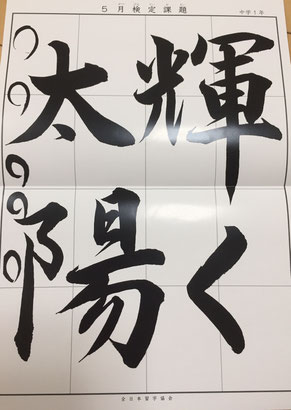 5月検定課題
中学1年
輝く
太陽
全日本習字協会